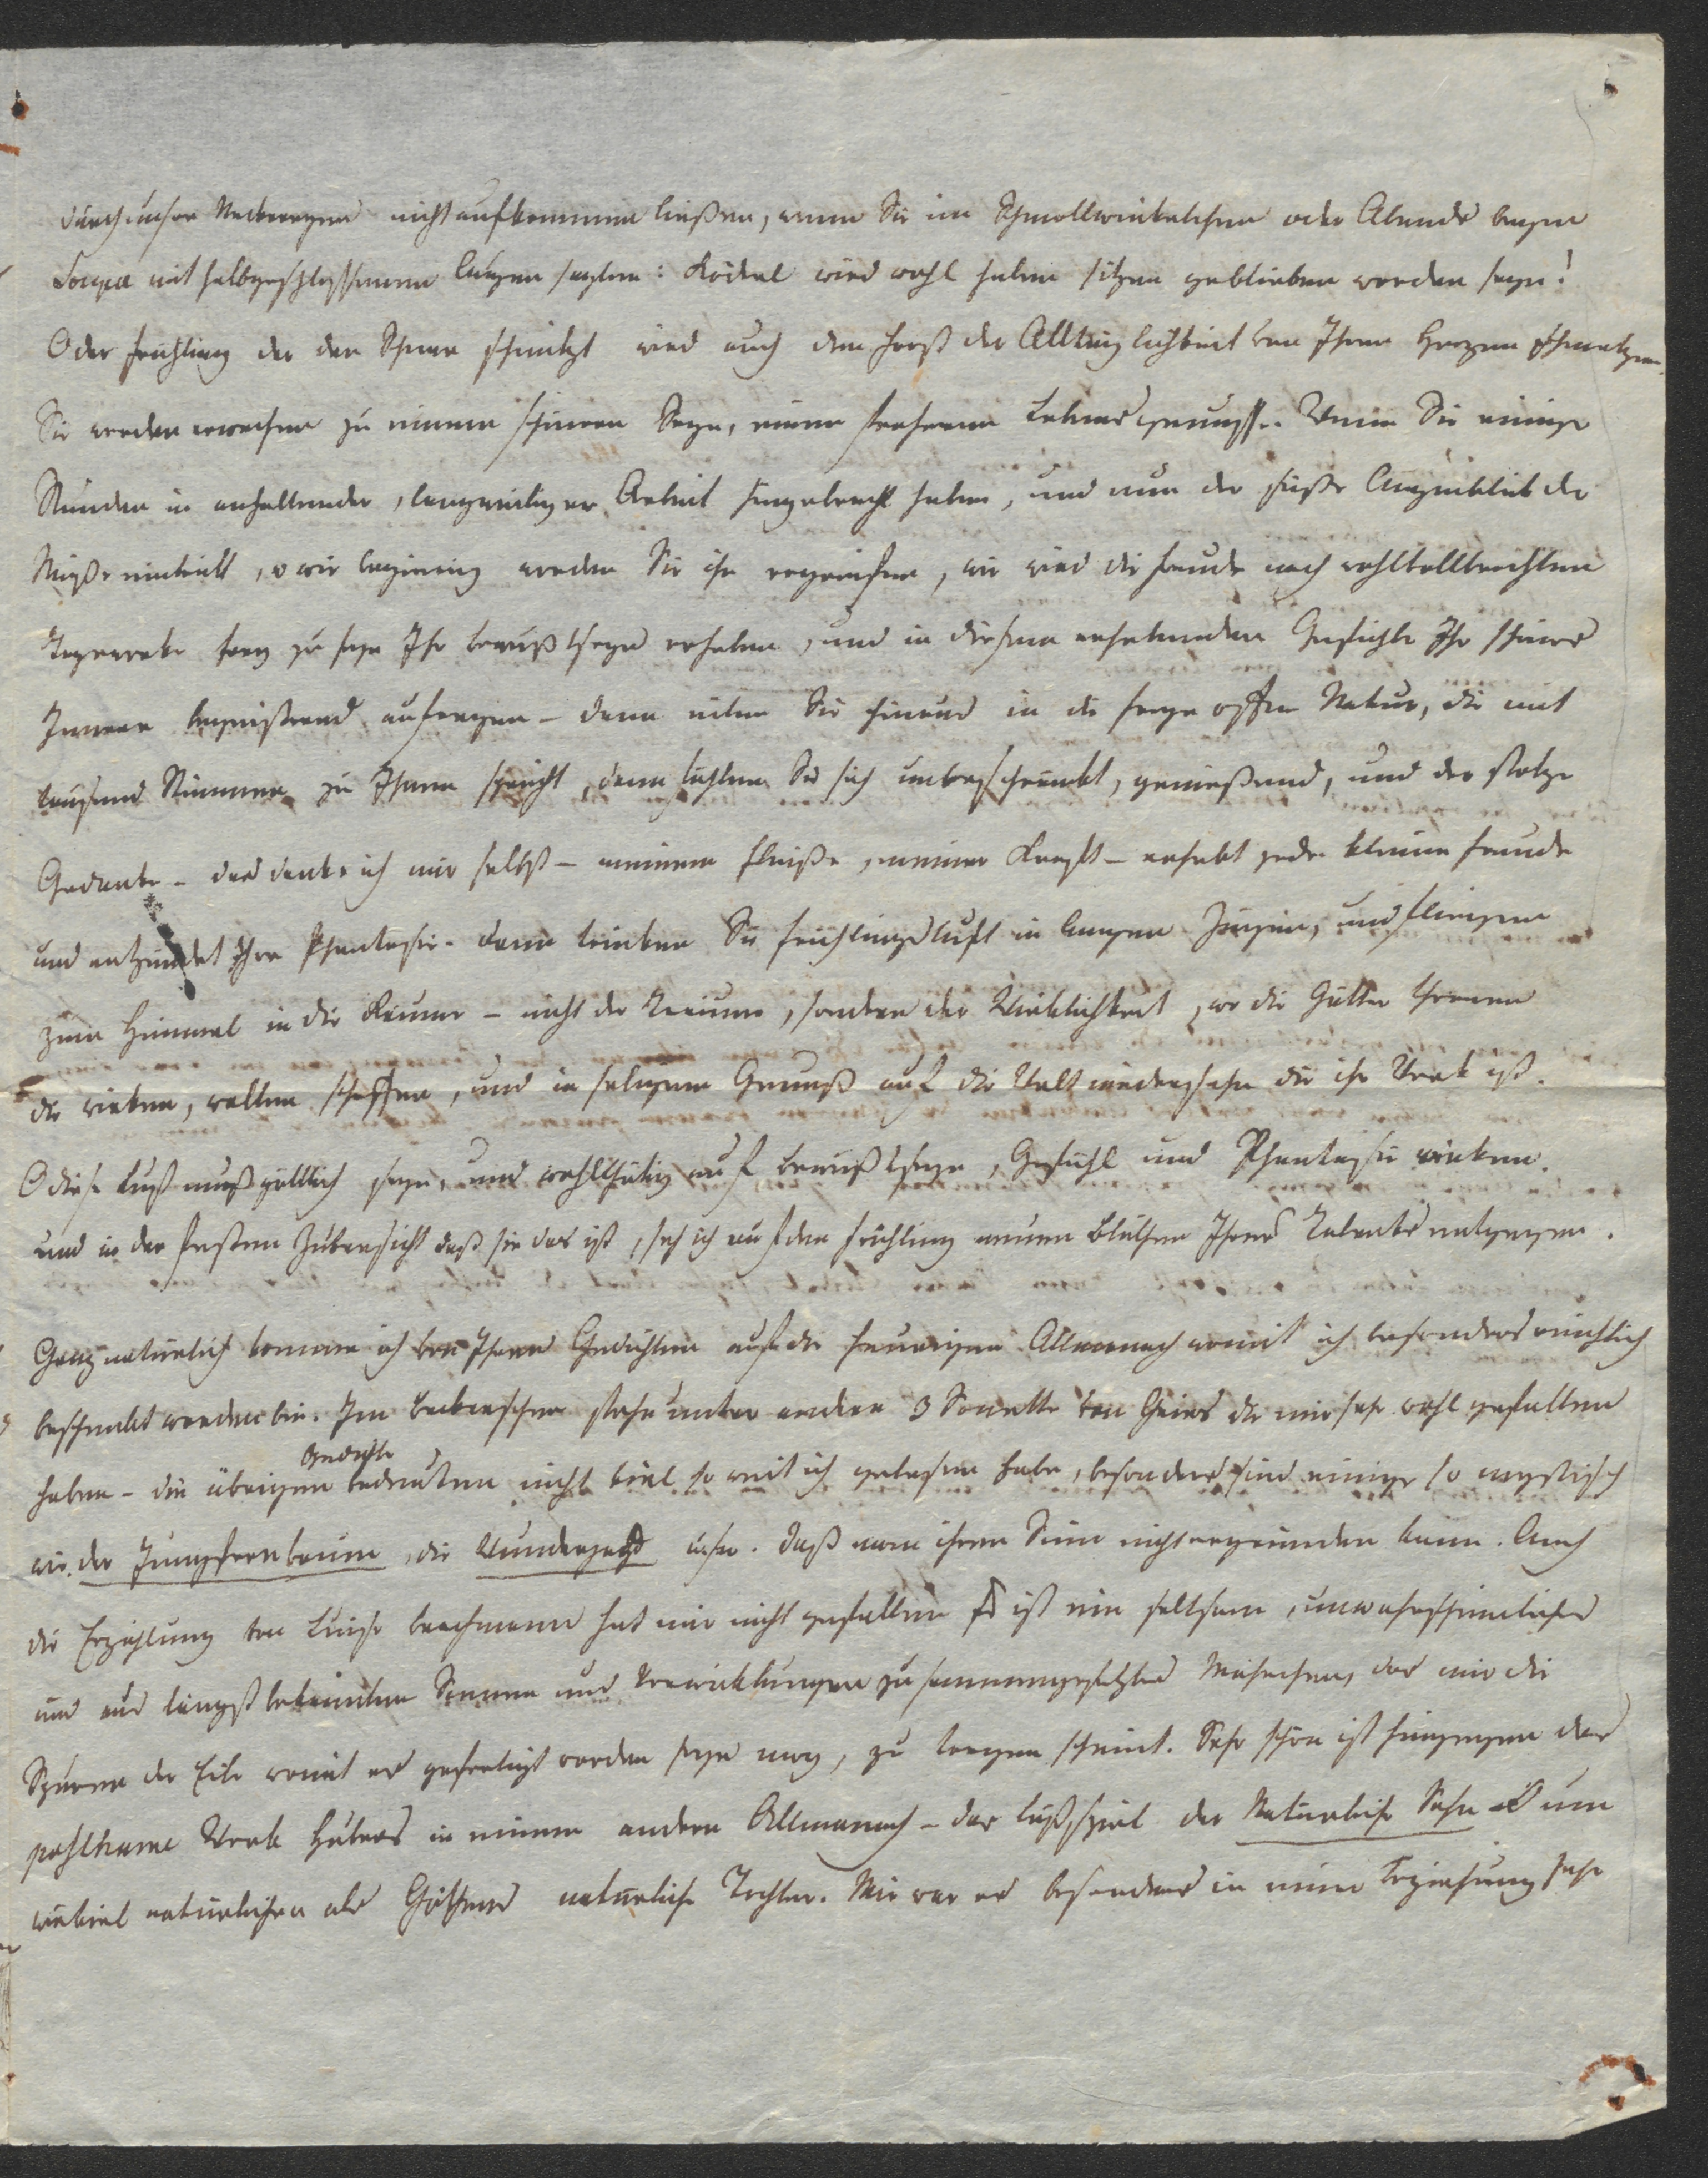 durch unsre Neckereyen nicht aufkommen ließen, wenn Sie im Schmollwinkelchen oder Abends beym
Soupee mit halbgeschlossenen Augen sagten: Rödel wird wohl haben sitzen geblieben worden seyn!
O der Frühling der den Schnee schmilzt wird auch den Frost der Alltäglichkeit von Ihrem Herzen schmelzen.
Sie werden erwachen zu einem schönen Seyn, einem frohern Lebensgenuß. Wenn Sie einige
Stunden in anhaltender, langweiliger Arbeit hingebracht haben, und nun der süße Augenblick der
Muße eintritt, o wie begierig werden Sie ihn ergreifen, wie wird die Freude nach wohlvollbrachtem
Tagewerke frey zu seyn Ihr Bewußtseyn erheben, und in diesem erhebenden Gefühle Ihr schönes
Innere begeisternd aufregen – dann eilen Sie hinaus in die freye offne Natur, die mit
tausend Stimmen zu Ihnen spricht, dann fühlen Sie sich unbeschränkt, genießend, und der stolze
Gedanke – das danke ich mir selbst – meinem Fleiße, meiner Kraft – erhebt jede kleine Freude
und entzündet Ihre Phantasie. Dann trinken Sie Frühlingsluft in langen Zügen, und fliegen
zum Himmel in die Räume – nicht der Träume, sondern der Wirklichkeit, wo die Götter thronen
die wirken, walten schaffen, und in seligem Genuß auf die Welt niedersehn die ihr Werk ist.
O diese Lust muß göttlich seyn, und wohlthätig auf Bewußtseyn, Gefühl und Phantasie wirken.
und in der festen Zuversicht daß sie das ist, seh ich auf den Frühling neuen Blüthen Ihres Talents entgegen.
Ganz natürlich komme ich von Ihren Gedichten auf die heurigen Allmanach womit ich besonders reichlich
beschenkt worden bin. Im Beckerschen stehn unter andern 3 Sonette von Gries die mir sehr wohl gefallen
haben – die übrigen Gedichte bedeuten nicht viel so weit ich gelesen habe, besonders sind einige so mystisch
wie der Jungfernbaum, die Wunderjagd usw. daß man ihren Sinn nicht ergründen kann. Auch
die Erzählung von Luise Brachmann hat mir nicht gefallen es ist ein seltsam, unwahrscheinliches
und aus längst bekannten Scenen und Verwicklungen zusammengesetztes Mährchen, das mir die
Spuren der Eile womit es gefertigt worden seyn mag, zu tragen scheint. Sehr schön ist hingegen das
posthume Werk Hubers in einem andern Allmanach – das Lustspiel der Natürliche Sohn – O um
wieviel natürlicher als Göthens natürliche Tochter. Mir war es besonders in einer Beziehung sehr